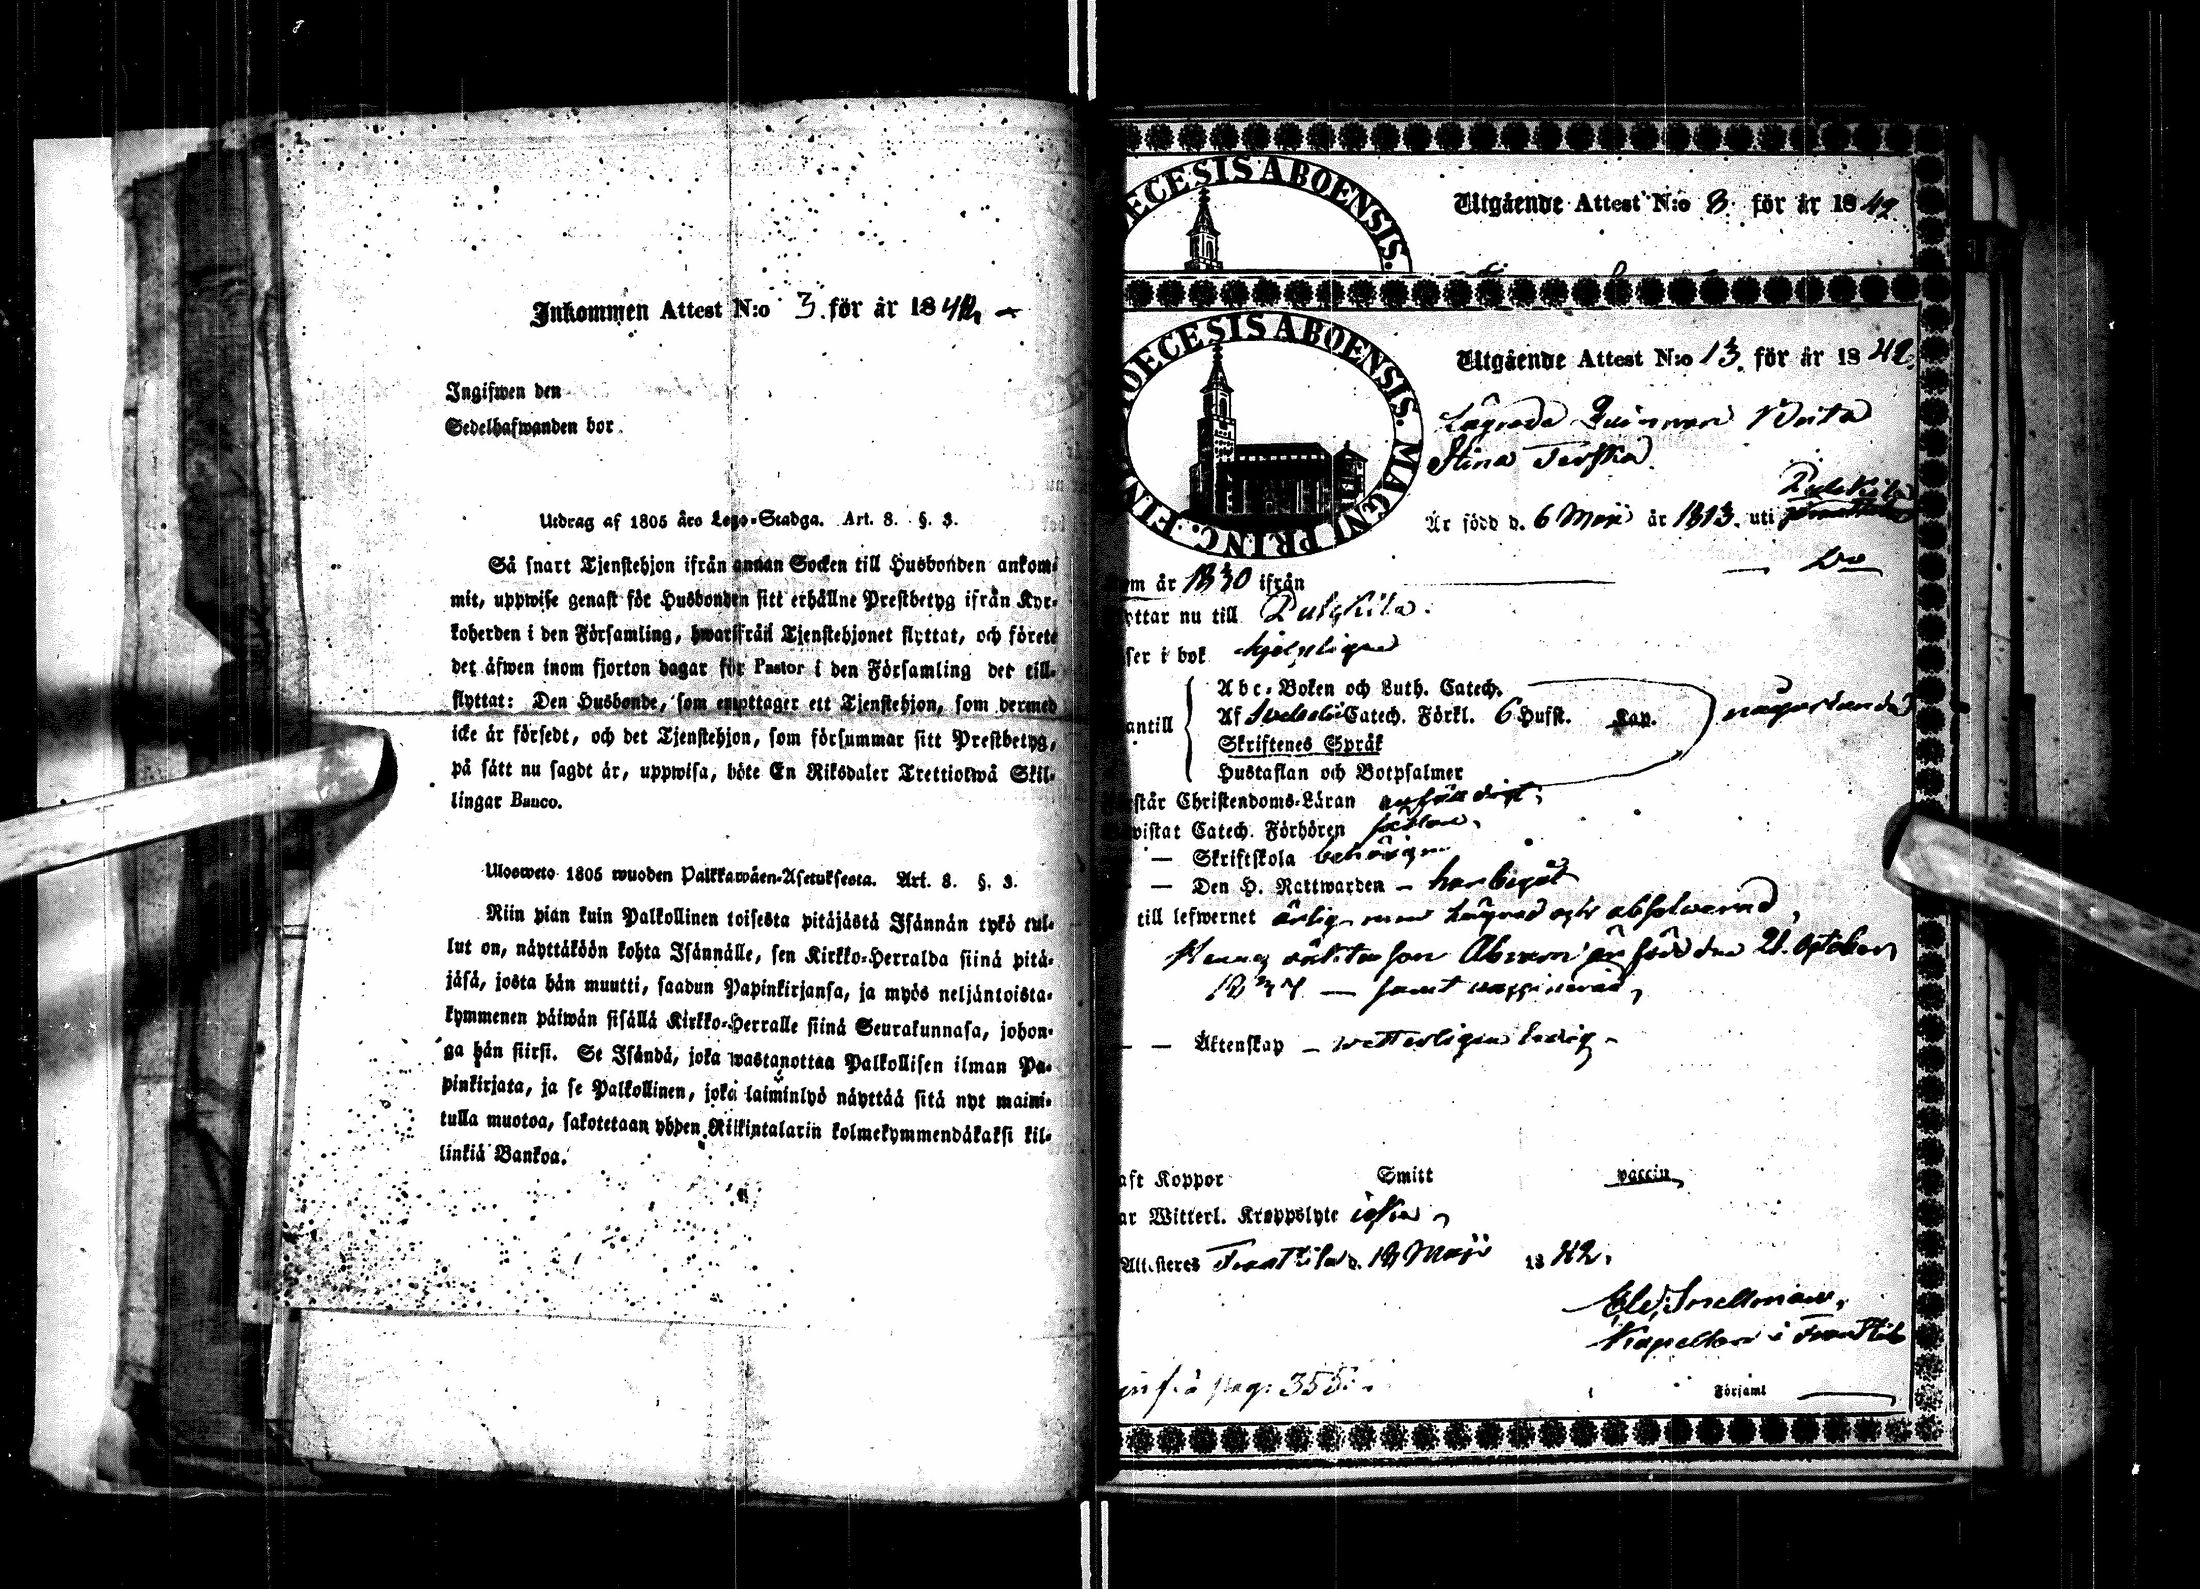 Inkommen Attest N:o 3. för år 1842.
Ingifwen den
Sedelhafwanden bor.
Utdrag af 1805 års Lego-Stadga. Art. 8. §. 3.
Så snart Tjenstehjon ifrån annan Socken till Husbonden ankom-
mit, uppwise genast för Husbonden sitt erhållne Prestbetyg ifrån Kyr-
koherden i den Församling, hwarifrån Tjenstehjonet flyttat, och förete
det äfwen inom fjorton dagar för Pastor i den Församling det till-
flyttat: Den Husbonde, som emottager ett Tjenstehjon, som dermed
icke är försedt, och det Tjenstehjon, som försummar sitt Prestbetyg,
på sätt nu sagdt är, uppwisa, böte En Riksdaler Trettiotwå Skil-
lingar Banco.
Ulosweto 1805 wuoden Palkkawäen-Asetuksesta. Art. 8. §. 3.
Niin pian kuin Palkollinen toisesta pitäjästä Isännän tykö tul-
lut on, näyttäköön kohta Isännälle, sen Kirkko-Herralda siinä pitä-
jäsä, josta hän muutti, saadun Papinkirjansa, ja myös neljäntoista-
kymmenen päiwän sisällä Kirkko-Herralle siinä Seurakunnasa, johon-
ga hän siirsi. Se Isändä, joka wastanottaa Palkollisen ilman Pa-
pinkirjata, ja se Palkollinen, joka laiminlyö näyttää sitä nyt maini-
tulla muotoa, sakotetaan yhden Riikintalarin kolmekymmendäkaksi kil-
linkiä Bankoa.
ECESIS ABOENSIS.
Utgående Attest N:o 8. för år 1842.
OECESIS ABOENSIS. MAGNI PRINC. FIN
Utgående Attest N:o 13. för år 1842.
Lägrade Qvinnan Brita
Stina
Är född d. 6 Maji år 1813. uti Pulkkila
Do
om år 1830 ifrån
yttar nu till Pulkkila.
ser i bok hjelpligen
antill
Abc-Boken och Luth. Catech.
Af Svebelii Catech. Förkl. 6 Hufst. Kap.
någorlunda
Skriftenes Språk
Hustaflan och Botpsalmer
står Christendoms-Läran enfaldigt,
wistat Catech. Förhören sällan,
— Skriftskola behörigen
— Den H. Nattwarden — har begått
till lefwernet ärlig, men Lägrad och absolverad,
Hennes oäkta son Abram är född den 21. October
1837 — samt vaccinerad,
— — Äktenskap — wetterligen ledig —
aft Koppor Smitt vaccin
ar Witterl. Kroppslyte icke
Attesteras Frantsila d. 18 Maji 1842.
El. Snellman,
Kapellan i Frantsila
pag: 355.
Församl